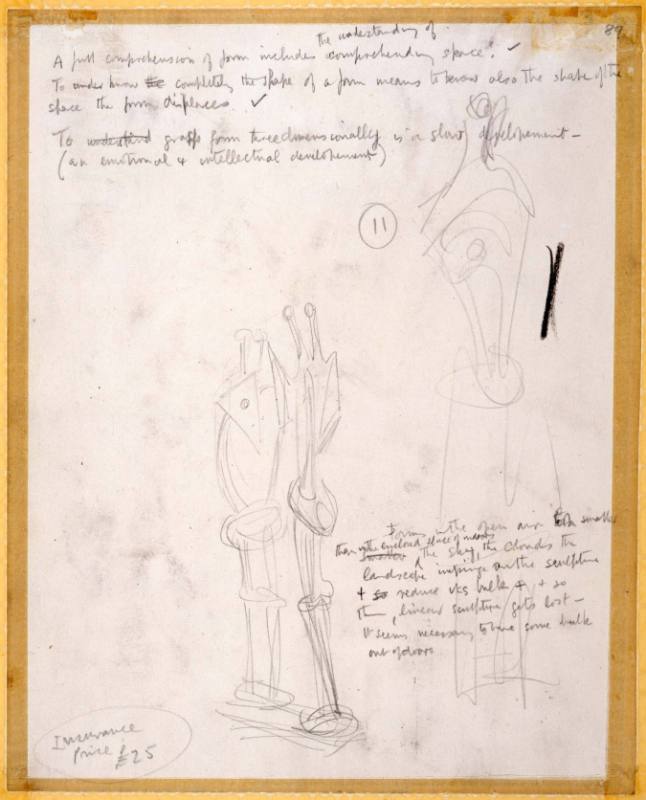 89
the understanding of
A full comprehension of form includes comprehending space. ✓
To under know the completely the shape of a form means to know also the shape of the
space the form displaces. ✓
To understand grasp form threedimensionally is a slow developement –
(an emotional & intellectual developement)
11
Forms in the open air look smaller
than in the enclosed space of rooms
the sky, the clouds the
landscape impinge on the sculpture
& so reduce its bulk & so
thin, linear sculpture gets lost –
It seems necessary to have some bulk
out of doors
Insurance
Price £
£25